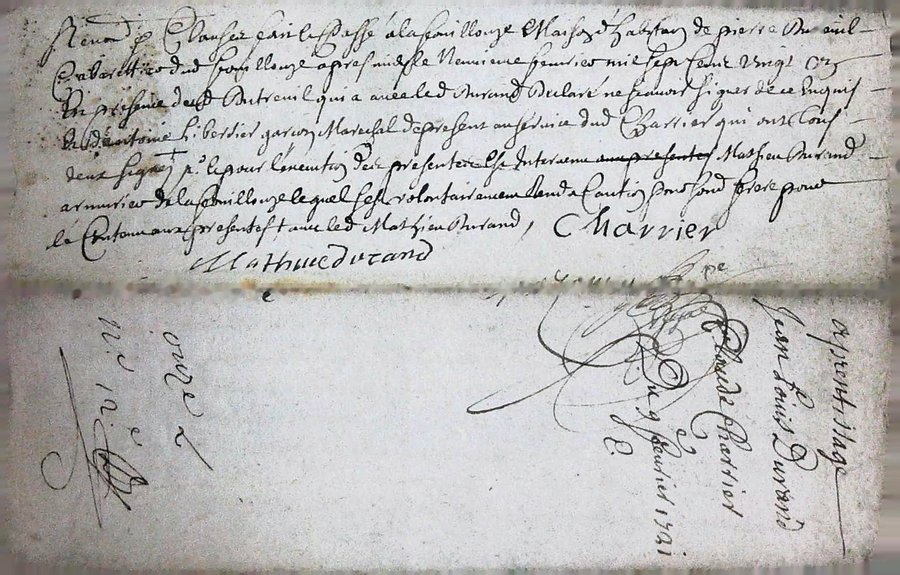 Renon & Clauses fait et passé a la fouillouze Maison d'habitaon de pierre Dutreuil
Cabarettier dud fouillouze apres midy le Neuvieme fevrier mil sept Cent vingt un
En presence dud Dutreuil qui a avec led Durand Declaré ne scavoir signer de ce Enquis
& d'antoine liberdier garcon Marechal de present au service dud Charrier qui ont tous
deux signé pour l'execution des presentes Est Intervenu aux presentes Mathieu Durand
armurier de la fouillouze lequel s'est volontairement Rendu Caution pour sond frere pour
le Contenu aux presentes avec led Mathieu Durand,
Charrier
Mathieu durand
aprentissage
Jean Louis Durand
Claude Charrier
Du 9e fevrier 1721
onze
n.e 12.e